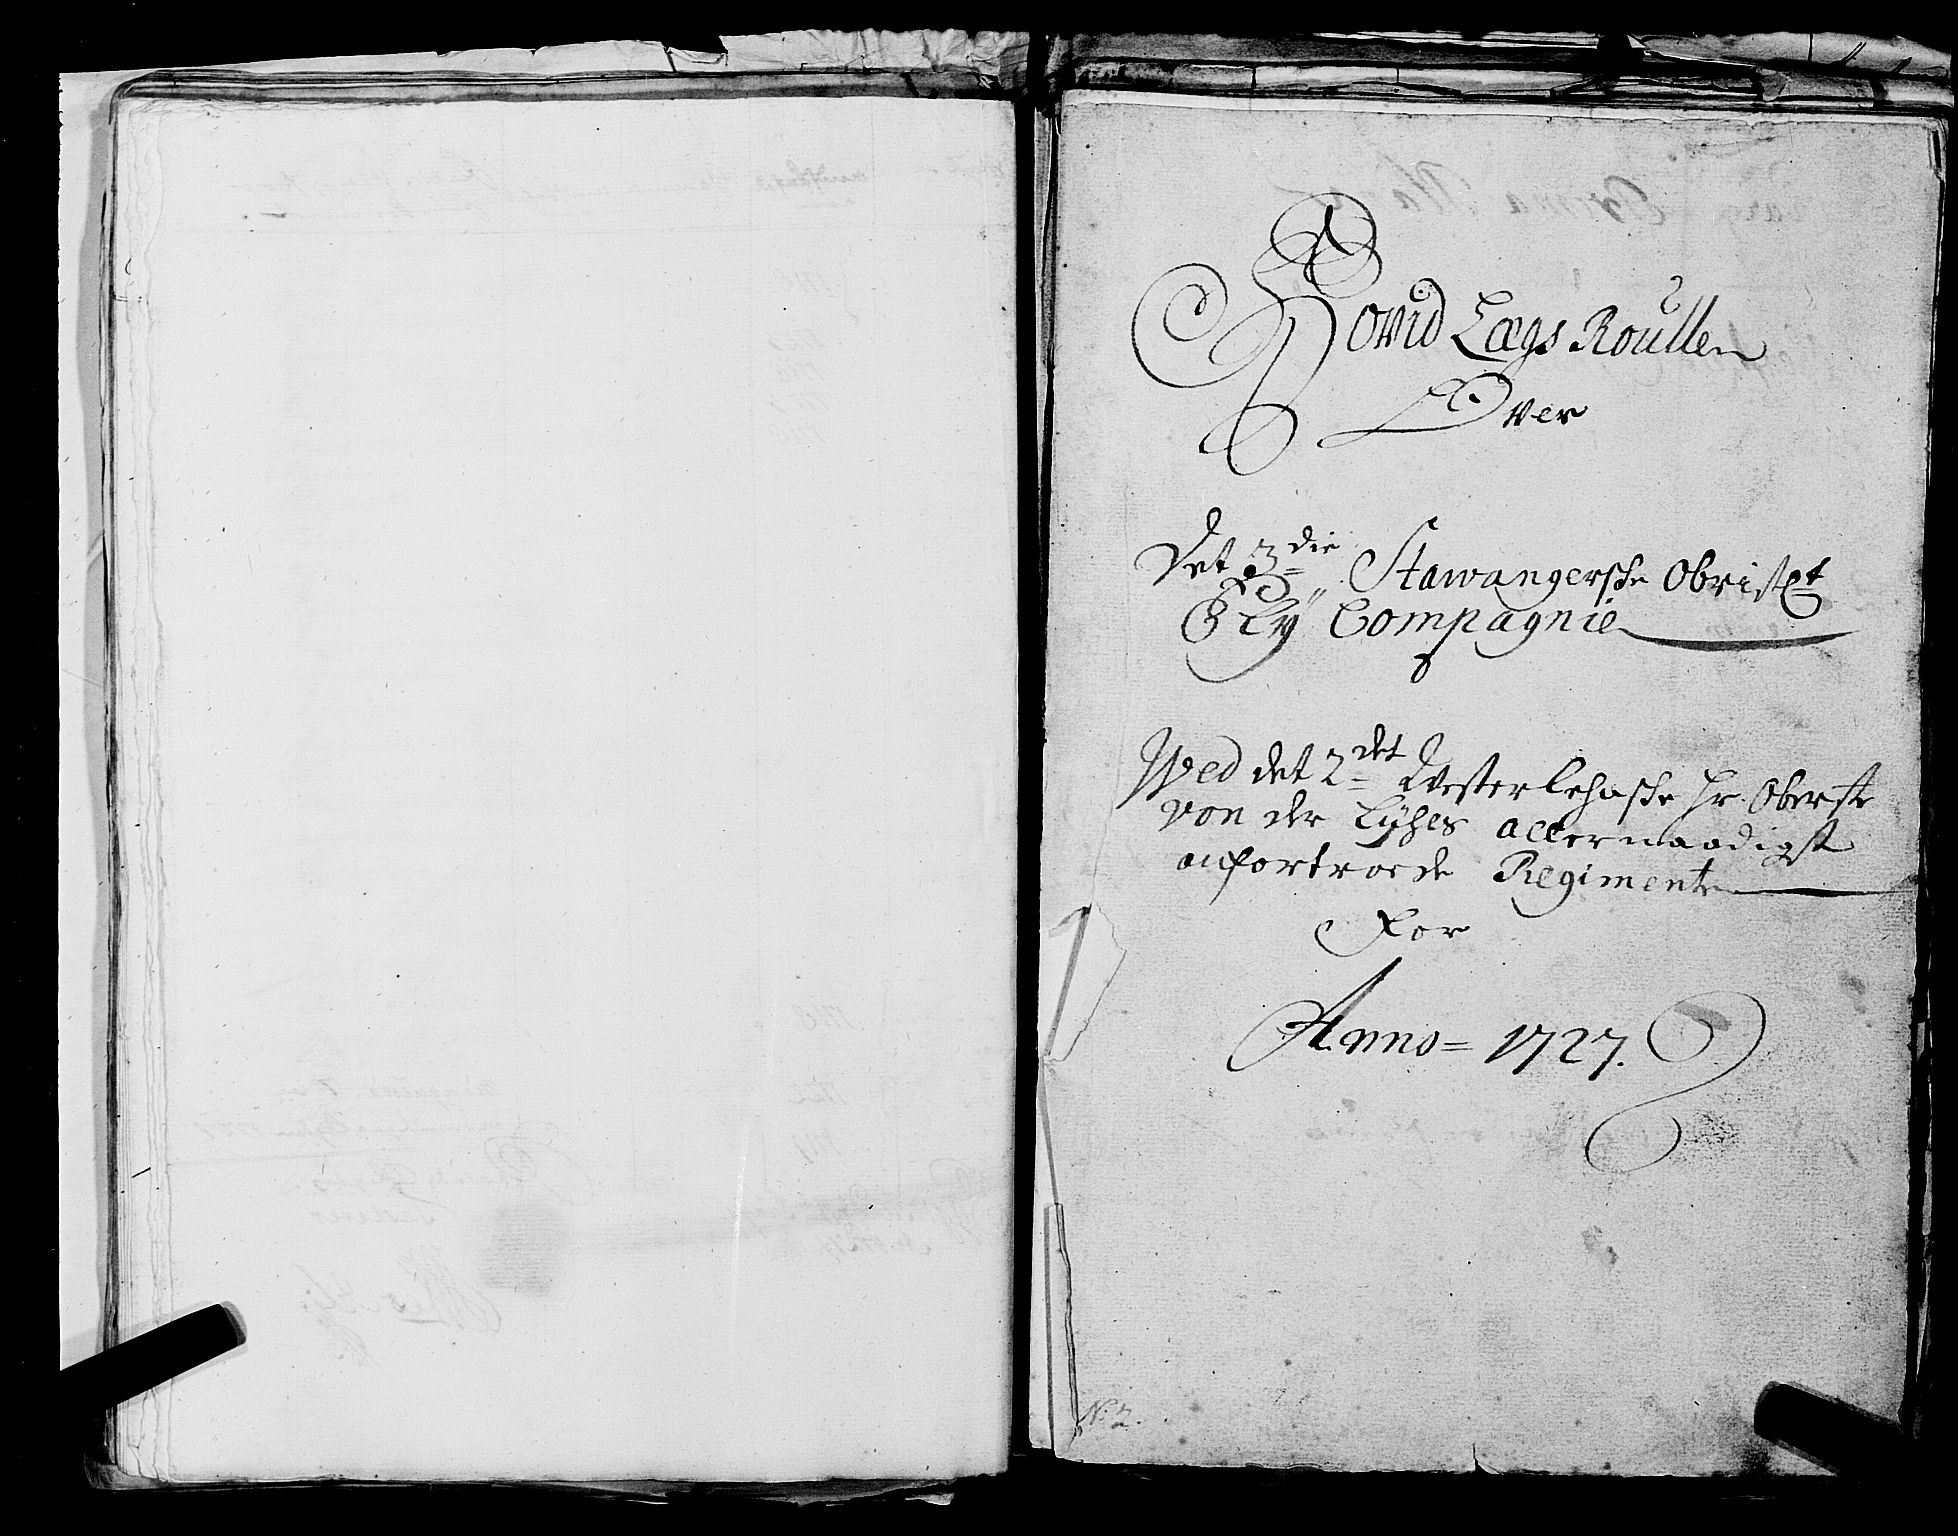 Hovid Lægs Roullen
Over
Det 3die Stawangersche Obristlt
Ely Compagnie
Wed det 2det Westerlehnsche Hr. Oberste
von der Lyhes allernaadigst
anfortroede Regimente
For
Anno = 1727.
N: 2.